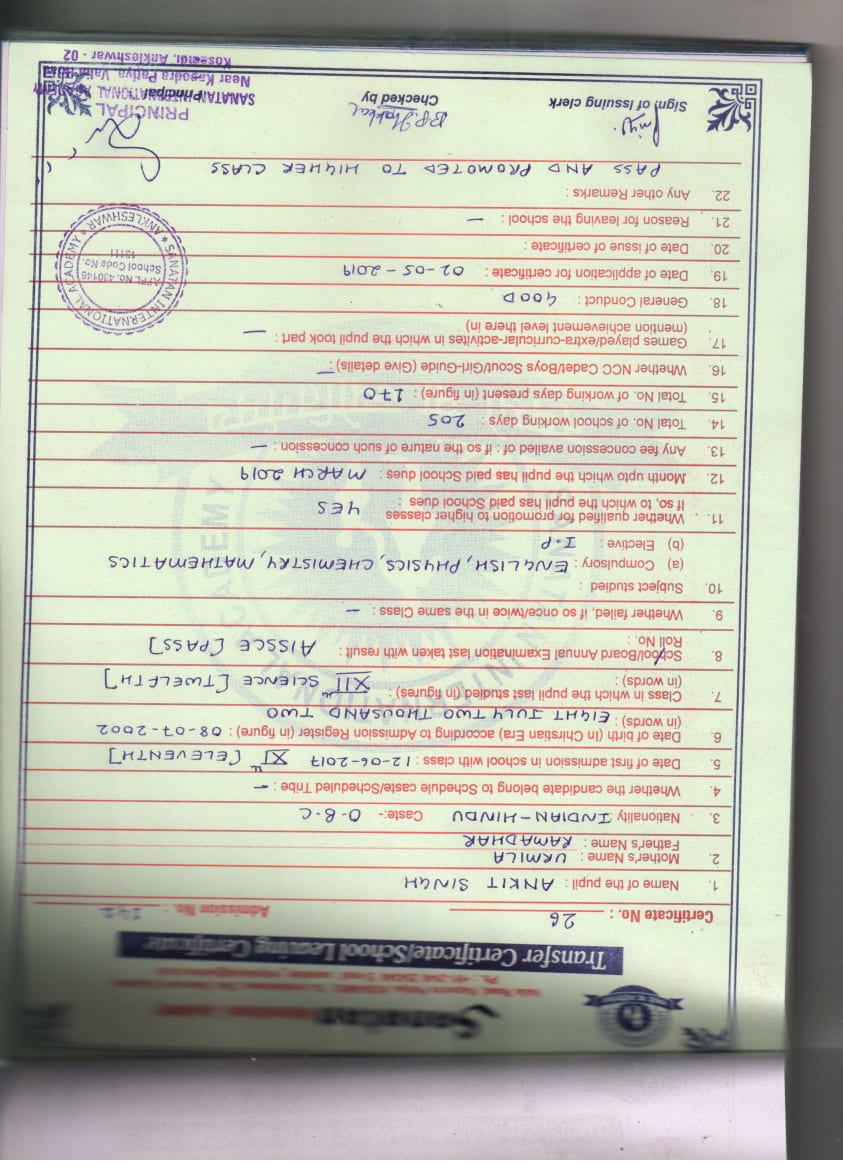 Sanatan
Transfer Certificate/School Leaving Certificate
Certificate No. : 26 Admission No. :
1. Name of the pupil : ANKIT SINGH
2. Mother's Name : URMILA
Father's Name : RAMADHAR
3. Nationality : INDIAN-HINDU Caste:- O.B.C
4. Whether the candidate belong to Schedule caste/Scheduled Tribe : –
5. Date of first admission in school with class : 12-06-2017 XI th [ELEVENTH]
6. Date of birth (In Chirstian Era) according to Admission Register (in figure) : 08-07-2002
(in words) : EIGHT JULY TWO THOUSAND TWO
7. Class in which the pupil last studied (in figures) : XII th SCIENCE [TWELFTH]
(in words) :
8. School/Board Annual Examination last taken with result : AISSCE [PASS]
Roll No. :
9. Whether failed, if so once/twice in the same Class : –
10. Subject studied :
(a) Compulsory : ENGLISH, PHYSICS, CHEMISTRY, MATHEMATICS
(b) Elective : I.P
11. Whether qualified for promotion to higher classes
If so, to which the pupil has paid School dues : YES
12. Month upto which the pupil has paid School dues : MARCH 2019
13. Any fee concession availed of : if so the nature of such concession : –
14. Total No. of school working days : 205
15. Total No. of working days present (in figure) : 170
16. Whether NCC Cadet/Boys Scout/Girl-Guide (Give details) : –
17. Games played/extra-curricular-activites in which the pupil took part : –
(mention achievement level there in)
18. General Conduct : GOOD
19. Date of application for certificate : 02-05-2019
20. Date of issue of certificate :
21. Reason for leaving the school : –
22. Any other Remarks :
PASS AND PROMOTED TO HIGHER CLASS
SANATAN INTERNATIONAL ACADEMY * ANKLESHWAR *
AFFI. No. 430146
School Code No.
13111
Sign. of Issuing clerk
Checked by
Principal
PRINCIPAL
SANATAN INTERNATIONAL
Near Kapodra Patiya, Valia Road
Kosamdi, Ankleshwar - 02